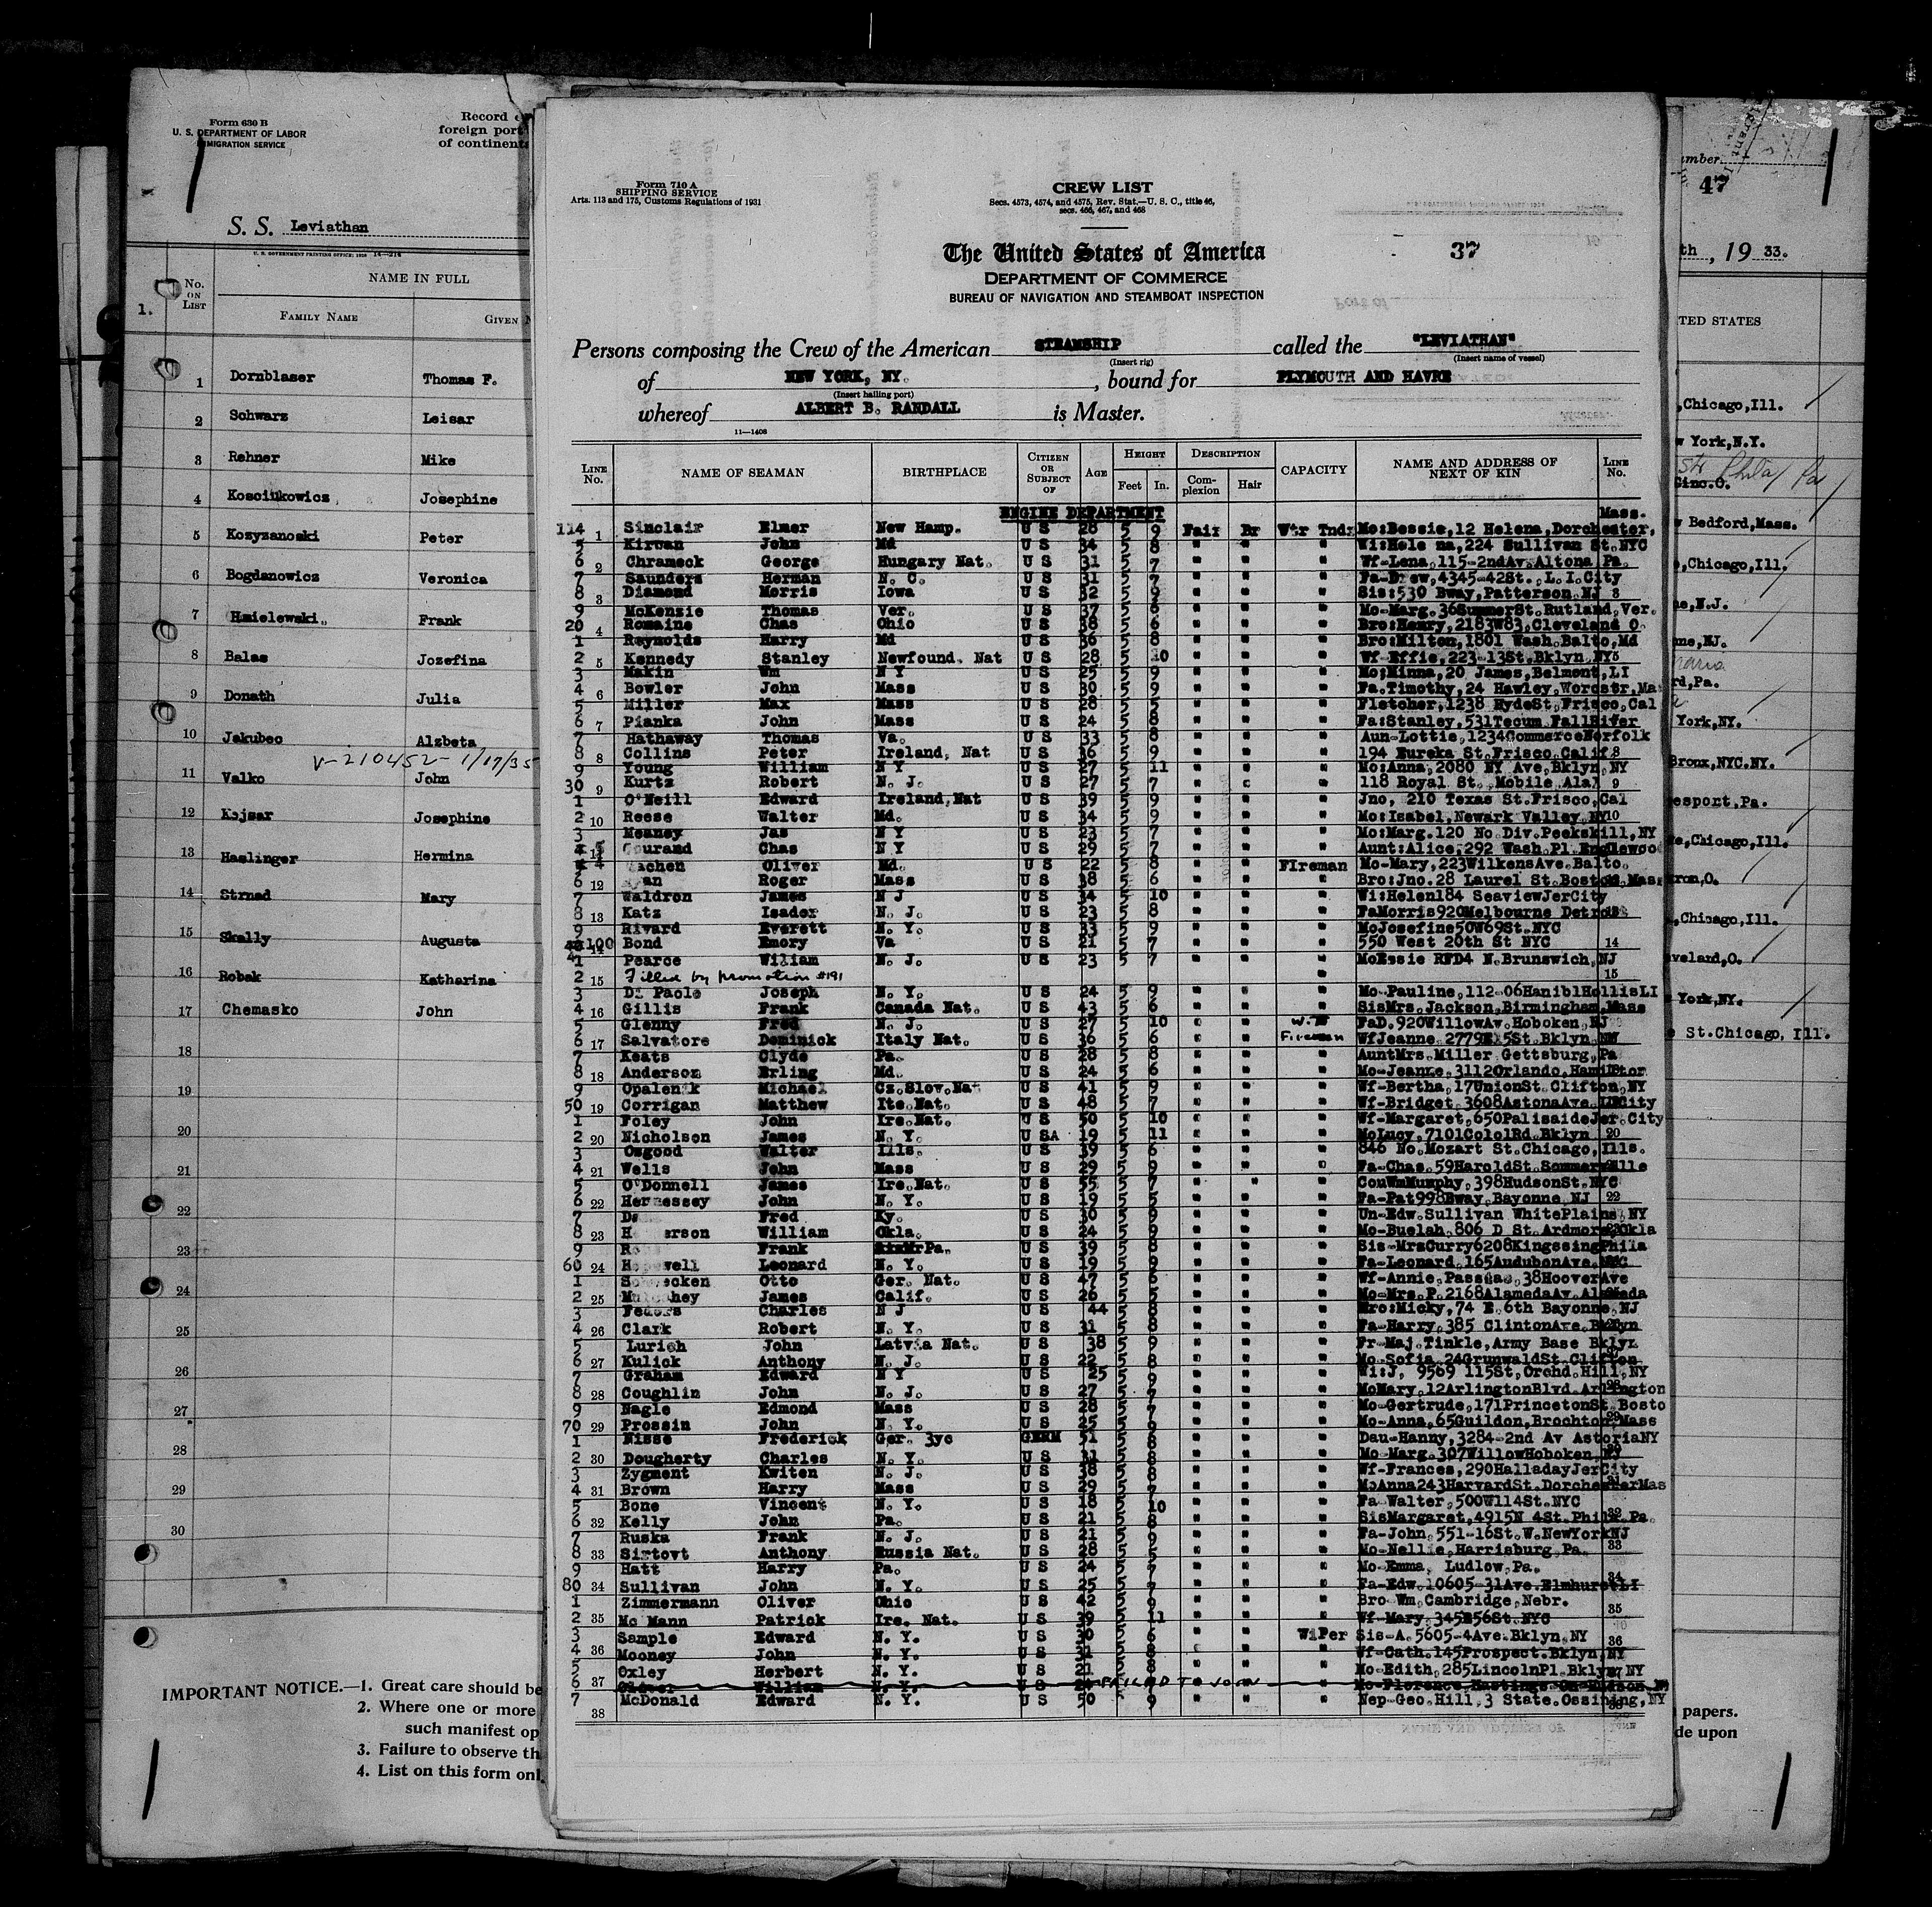 Form 630 B
U. S. DEPARTMENT OF LABOR
IMMIGRATION SERVICE
Record
foreign port
of continent
S. S. Leviathan
U. S. GOVERNMENT PRINTING OFFICE: 1929 14—214
No. ON LIST
NAME IN FULL
FAMILY NAME GIVEN
1.
1 Dornblaser Thomas F.
2 Schwarz Leisar
3 Rehner Mike
4 Kosciukowicz Josephine
5 Kozyzanoski Peter
6 Bogdanowicz Veronica
7 Hmielewski. Frank
8 Balas Jozefina
9 Donath Julia
10 Jakubec Alzbeta
V-210452- 1/17/35
11 Valko John
12 Kejsar Josephine
13 Haslinger Hermina
14 Strnad Mary
15 Skally Augusta
16 Robak Katharina
17 Chemasko John
18
19
20
21
22
23
24
25
26
27
28
29
30
IMPORTANT NOTICE.—1. Great care should be
2. Where one or more
such manifest op
3. Failure to observe th
4. List on this form onl
Form 710 A
SHIPPING SERVICE
Arts. 113 and 175, Customs Regulations of 1931
CREW LIST
Secs. 4573, 4574, and 4575, Rev. Stat.—U. S. C., title 46,
secs. 466, 467, and 468
The United States of America
DEPARTMENT OF COMMERCE
BUREAU OF NAVIGATION AND STEAMBOAT INSPECTION
37
Persons composing the Crew of the American STEAMSHIP called the "LEVIATHAN"
(Insert rig) (Insert name of vessel)
of NEW YORK, NY. , bound for PLYMOUTH AND HAVRE
(Insert hailing port)
whereof ALBERT B. RANDALL is Master.
11—1408
LINE No. NAME OF SEAMAN BIRTHPLACE CITIZEN OR SUBJECT OF AGE HEIGHT Feet In. DESCRIPTION Complexion Hair CAPACITY NAME AND ADDRESS OF NEXT OF KIN LINE No.
ENGINE DEPARTMENT Mass.
114 1 Sinclair Elmer New Hamp. U S 28 5 9 Fair Br Wtr Tndr Mo:Bessie,12 Helena,Dorchester,
5 Kirwan John Md U S 34 5 8 " " " Wi:Hele na,224 Sullivan St.NYC
6 2 Chrameck George Hungary Nat. U S 31 5 7 " " " Wf-Lena,115-2ndAv.Altona Pa.
7 Saunders Herman N. C. U S 31 5 7 " " " Fa-Drew,4345-42St.,L.I.City
8 3 Diamond Morris Iowa U S 32 5 9 " " " Sis:530 Bway,Patterson,NJ 3
9 McKenzie Thomas Ver. U S 37 5 6 " " " Mo-Marg.36SummerSt.Rutland,Ver.
20 4 Romaine Chas Ohio U S 38 5 6 " " " Bro:Henry,2183W83,Cleveland O.
1 Reynolds Harry Md U S 36 5 8 " " " Bro:Milton,1801 Wash.Balto,Md
2 5 Kennedy Stanley Newfound. Nat U S 28 5 10 " " " Wf-Effie,223-13St.Bklyn,NY5
3 Makin Wm N Y U S 25 5 9 " " " Mo;Minna,20 James,Belmont,LI
4 6 Bowler John Mass U S 30 5 9 " " " Fa.Timothy,24 Hawley,Worcstr,Ma
5 Miller Max Mass U S 28 5 5 " " " Fletcher,1238 HydeSt,Frisco,Cal
6 7 Pianka John Mass U S 24 5 8 " " " Fa:Stanley,531Tecum FallRiver
7 Hathaway Thomas Va. U S 33 5 8 " " " Aun-Lottie,1234CommerceNorfolk
8 8 Collins Peter Ireland, Nat U S 36 5 9 " " " 194 Eureka St.Frisco.Calif8
9 Young William N Y U S 27 5 11 " " " Mo:Anna,2080 NY Ave,Bklyn,NY
30 9 Kurtz Robert N. J. U S 27 5 7 " " " 118 Royal St. Mobile Ala 9
1 O'Neill Edward Ireland,Nat U S 39 5 9 " " " Jno, 210 Texas St.Frisco,Cal
2 10 Reese Walter Md. U S 34 5 9 " " " Mo:Isabel,Newark Valley,NY10
3 Meaney Jas N Y U S 23 5 7 " " " Mo:Marg.120 No Div.Peekskill,NY
5 11 ourand Chas N Y U S 29 5 7 " " " Aunt:Alice,292 Wash.Pl.Englewoo
4 achen Oliver Md. U S 22 5 8 " " FIreman Mo-Mary,223WilkensAve.Balto.
6 12 an Roger Mass U S 38 5 6 " " " Bro:Jno.28 Laurel St.Boston,Mass
7 Waldron James N J U S 34 5 10 " " " Wi:Helen184 SeaviewJerCity
8 13 Katz Isader N. J. U S 23 5 8 " " " FaMorris920Melbourne Detroit
9 Rivard Everett N. Y. U S 33 5 9 " " " MoJosefine50W69St.NYC
100 14 Bond Emory Va U S 21 5 7 " " " 550 West 20th St NYC 14
1 Pearce Wiliam N. J. U S 23 5 7 " " " MoEssie RFD4 N.Brunswich,NJ
2 15 Filled by promotion #191 " 15
3 Di Paolo Joseph N. Y. U S 24 5 9 " " " Mo-Pauline,112-06HaniblHollisLI
4 16 Gillis Frank Canada Nat. U S 43 5 6 " " " SisMrs.Jackson,Birmingham,Mass
5 Glenny Fred N. J. U S 27 5 10 " " W.T FaD.920WillowAv.Hoboken,NJ
6 17 Salvatore Dominick Italy Nat. U S 36 5 6 " " Fireman WfJeanne 2779E15St.Bklyn,NY
7 Keats Clyde Pa. U S 28 5 8 " " " AuntMrs.Miller Gettsburg,Pa
8 18 Anderson Erling Md. U S 24 5 6 " " " Mo-Jeanne,3112Orlando,Hamilton
9 Opalenik Michael Cz.Slov.Nat U S 41 5 9 " " " Wf-Bertha,17UnionSt.Clifton,NY
50 19 Corrigan Matthew Ire.Nat. U S 48 5 7 " " " Wf-Bridget,3608AstonaAve.LICity
1 Foley John Ire.Nat. U S 50 5 10 " " " Wf-Margaret,650PalisaideJer.City
2 20 Nicholson James N. Y. U SA 19 5 11 " " " MoLucy,7101CololRd.Bklyn 20
3 Osgood Walter Ills. U S 39 5 6 " " " 846 No.Mozart St.Chicago,Ills.
4 21 Wells John Mass U S 29 5 9 " " " Fa-Chas.59HaroldSt.Sommerville
5 O'Donnell James Ire.Nat. U S 55 5 7 " " " CouWmMurphy,398HudsonSt.NYC
6 22 Hennessey John N. Y. U S 19 5 5 " " " Fa-Pat998Bway,Bayonne,NJ 22
7 Fred Ky. U S 30 5 9 " " " Un-Edw.Sullivan WhitePlains,NY
8 23 H erson William Okla. U S 24 5 9 " " " Mo-Buelah,806 D St.Ardmore,Okla
9 Frank Pa. U S 39 5 8 " " " Sis-MrsCurry6208KingssingPhila
60 24 Hopewell Leonard N. Y. U S 19 5 9 " " " Fa-Leonard,165AudubonAve.NYC
1 S ecken Otto Ger. Nat. U S 47 5 6 " " " Wf-Annie,Passiac,38HooverAve
2 25 Mulcahey James Calif. U S 26 5 5 " " " Mo-Mrs.P.2168AlamedaAv.Alameda
3 Fedors Charles N J U S 44 5 8 " " " Bro:Micky,74 E.6th Bayonne,NJ
4 26 Clark Robert N. Y. U S 31 5 8 " " " Fa-Harry,385 ClintonAve.Bklyn
5 Lurich John Latvia Nat. U S 38 5 9 " " " Fr-Maj.Tinkle,Army Base Bklyn
6 27 Kulick Anthony N. J. U S 22 5 8 " " " Mo-Sofia,24GrunwaldSt.Clifton
7 Graham Edward N Y U S 25 5 9 " " " Wi:J, 9569 115St,Orchd.Hill,NY
8 28 Coughlin John N. J. U S 27 5 7 " " " MoMary,12ArlingtonBlvd.Arlington
9 Nagle Edmond Mass U S 28 5 7 " " " Mo-Gertrude,171PrincetonSt.Bosto
70 29 Prossin John N. Y. U S 25 5 9 " " " Mo-Anna,65Guildon,Brochton,Mass
1 Nisse Frederick Ger. 3yc GERM 51 5 8 " " " Dau-Hanny,3284-2nd Av AstoriaNY
2 30 Dougherty Charles N. Y. U S 31 5 8 " " " Mo-Marg.307WillowHoboken,NY
3 Zygment Kwiten N. J. U S 38 5 8 " " " Wf-Frances,290HalladayJerCity
4 31 Brown Harry Mass U S 29 5 7 " " " MoAnna243HarvardSt.DorchesterMas
5 Bone Vincent N. Y. U S 18 5 10 " " " Fa Walter,500W114St.NYC
6 32 Kelly John Pa. U S 21 5 8 " " " SisMargaret,4915N 4St.Phila.Pa.
7 Ruska Frank N. J. U S 21 5 9 " " " Fa-John,551-16St.W.NewYorkNJ
8 33 Sirtovt Anthony Russia Nat. U S 28 5 5 " " " Mo-Nellie,Harrisburg,Pa. 33
9 Hatt Harry Pa. U S 24 5 7 " " " Mo-Emma, Ludlow,Pa.
80 34 Sullivan John N. Y. U S 25 5 7 " " " Fa-Edw.10605-31Ave.ElmhurstLI
1 Zimmermann Oliver Ohio U S 42 5 9 " " " Bro Wm,Cambridge,Nebr.
2 35 Mc Mann Patrick Ire. Nat. U S 39 5 11 " " " Wf-Mary,345E56St.NYC 35
3 Sample Edward N. Y. U S 30 5 6 " " WiPer Sis-A.5605-4Ave.Bklyn.NY
4 36 Mooney John N. Y. U S 31 5 8 " " " Wf-Cath.145Prospect.Bklyn,NY 36
5 Oxley Herbert N. Y. U S 21 5 8 " " " Mo-Edith,285LincolnPl.Bklyn,NY
6 37 William N. Y. U S FAILED TO JOIN Mo-Florence,Hastings-On-Hudson,N
7 McDonald Edward N. Y. U S 50 5 9 " " " Nep-Geo.Hill,3 State.Ossining,NY
38
umber
47
th , 19 33.
TED STATES
,Chicago,Ill.
w York,N.Y.
str Phila Pa
Cinc.O.
w Bedford,Mass.
,Chicago,Ill.
ne,N.J.
nne,NJ.
rd,Pa.
York,NY.
Bronx,NYC.NY.
esport,Pa.
e,Chicago,Ill.
kron,O.
,Chicago,Ill.
eveland,O.
York,NY.
St.Chicago, Ill.
papers.
de upon